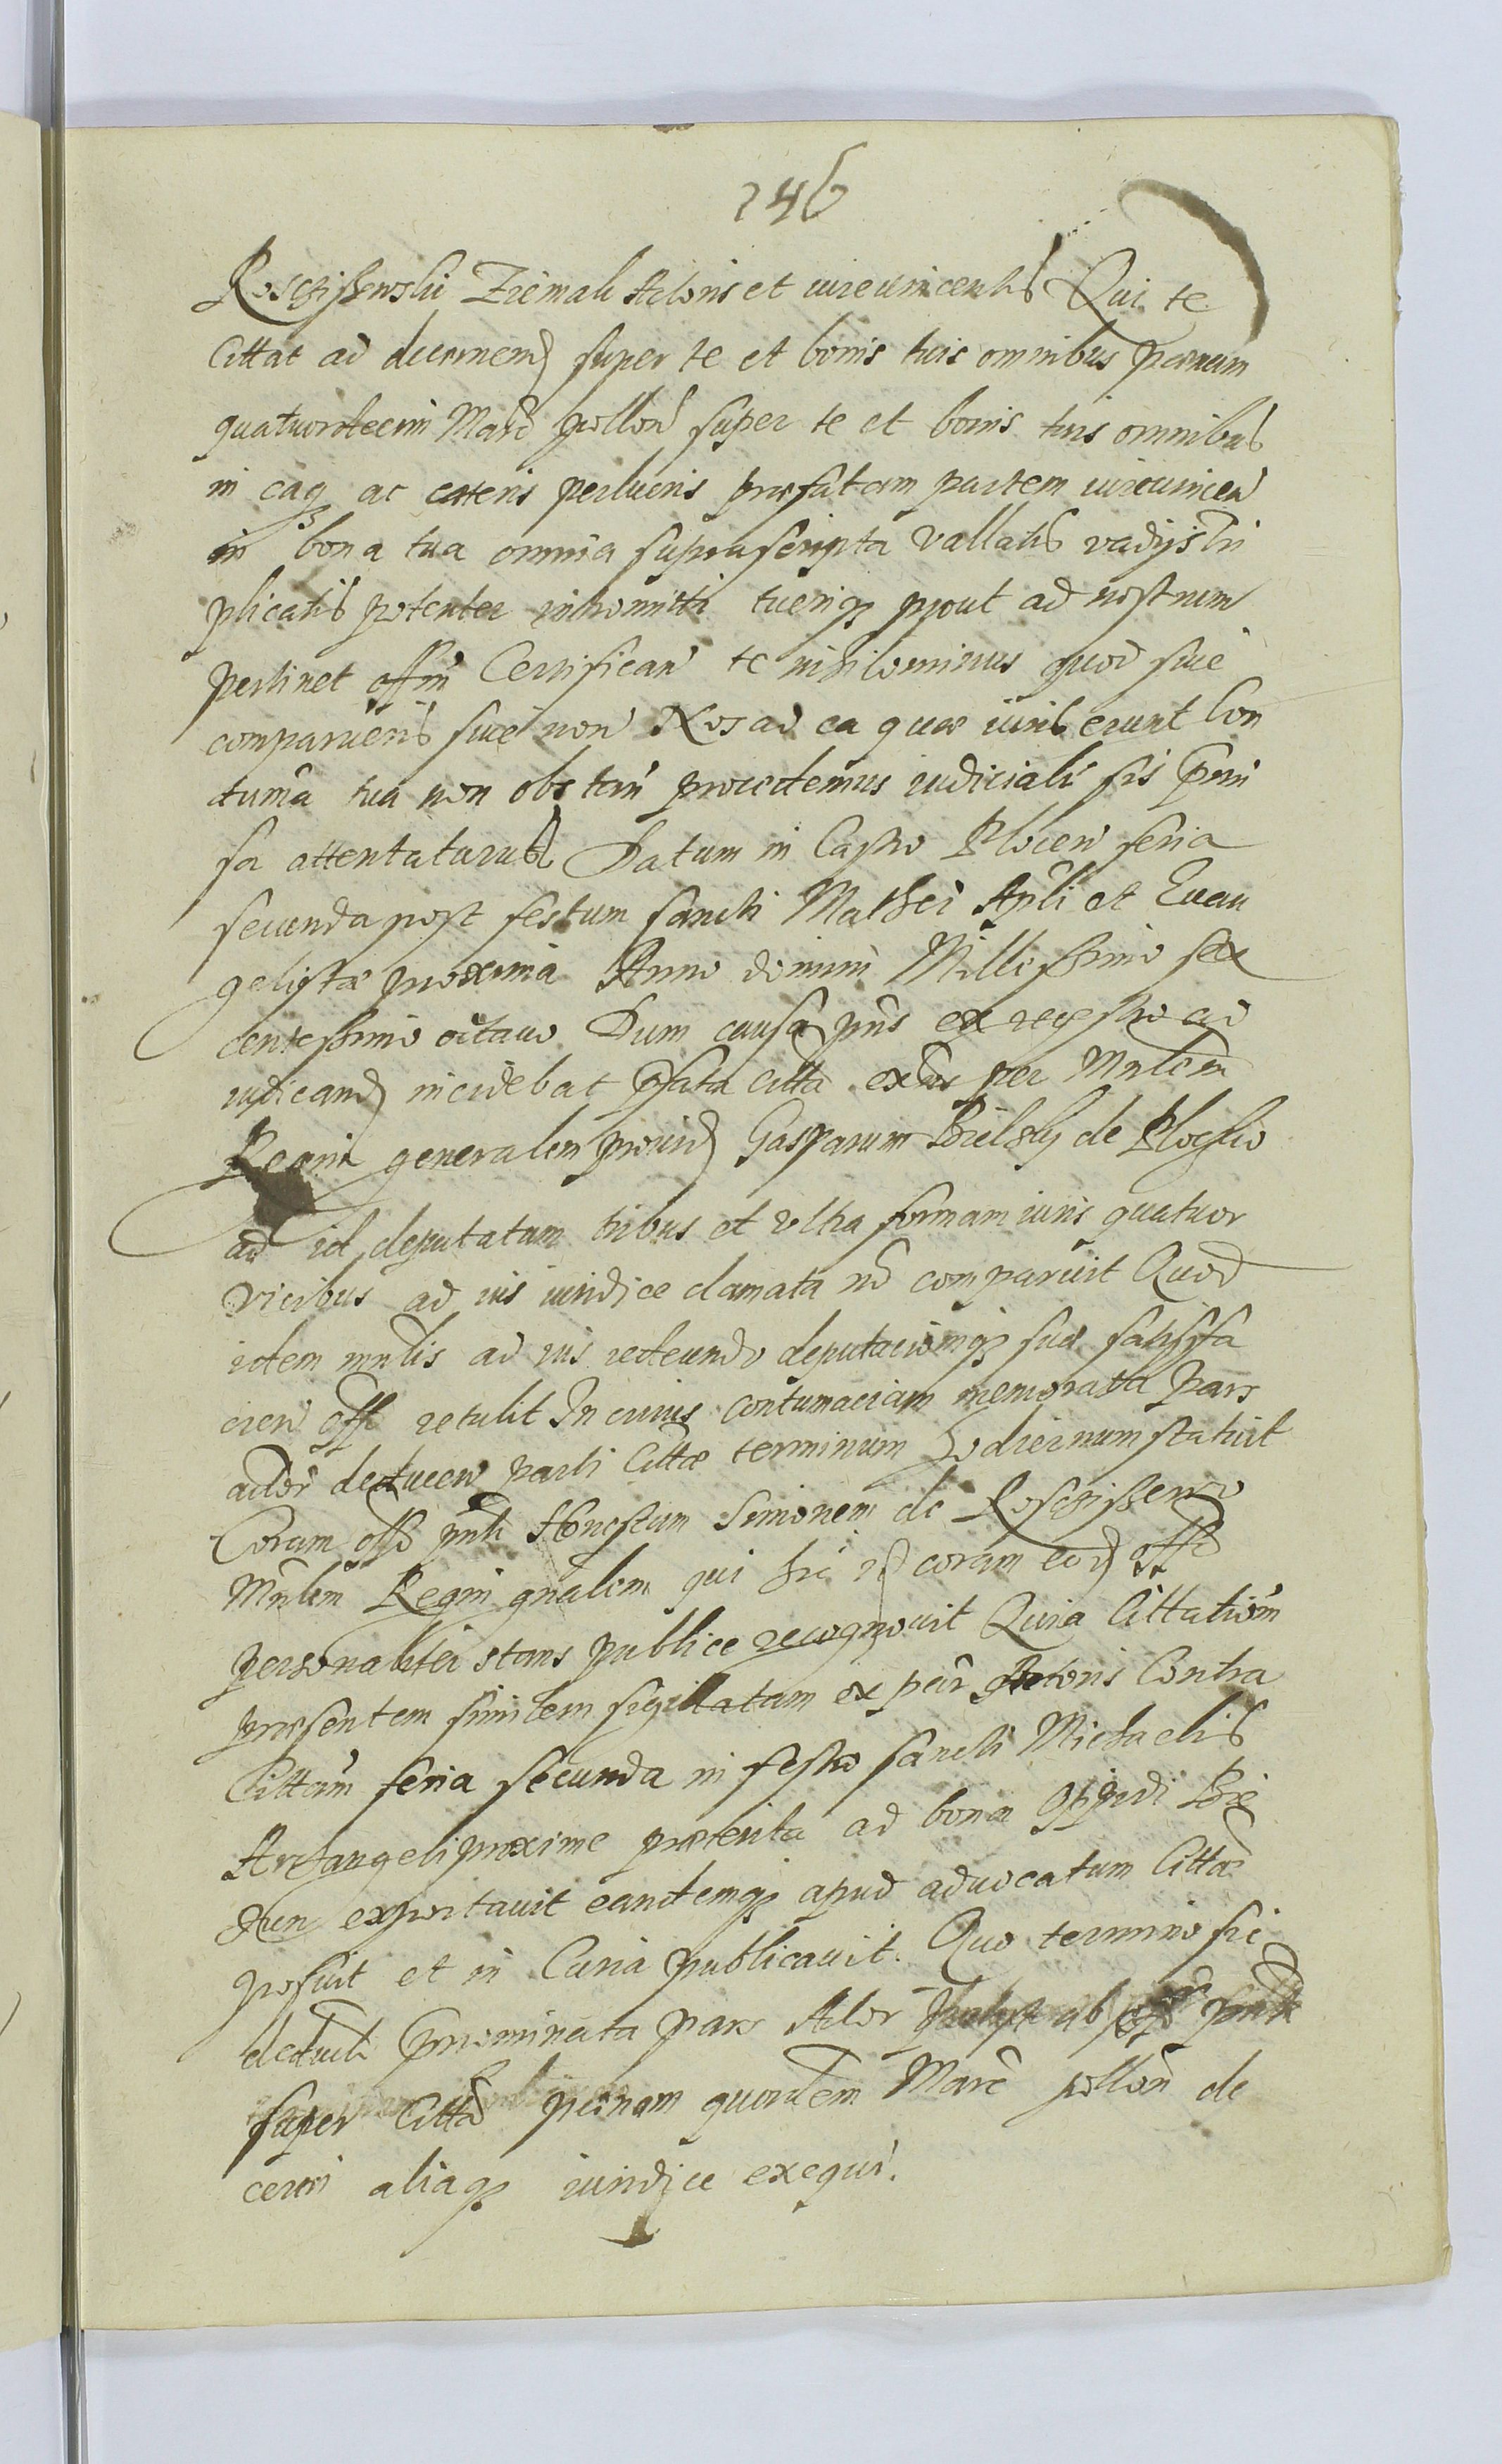 246
Roscziszewski Ziemak Actoris et iurevincentis Qui te
Cittat ad decernend super te et bonis tuis omnibus pænam
quatuordecim Marc pollon super te et bonis tuis omnibus
in eaq ac cæteris perlucris præfatam partem iurevincen
in bona tua omnia suprascripta vallatis vadijs tri
plicatis potenter intromitti tueriq prout ad nostrum
pertinet offm Certifican te nihilominus quod sive
comparueris sive non Nos ad ea quæ iuris erunt Con
tuma tua non obstan procedemus iudiciali sis præmi
sa attentaturus Datum in Castro Plocen feria
secunda post festum sancti Mathei Apli et Evan
gelistæ proxima Anno domini Millessimo sex
centessimo octavo Dum causa pns ex regestro ad
iudicand incidebat pfata citta exns per Mnlem
Regni generalem provid Gasparum Bielsky de Plocko
ad id deputatam tribus et ultra formam iuris quatuor
vicibus ad ius iuridice clamata no comparuit Quod
idem mnlis ad ius redeundo deputacioniq suæ satisfa
cien offi retulit In cuius contumaciam memorata Pars
actor deducen parti Cittæ terminum hodiernum statuit
Coram offo pnti Honestum Simonem de Roscziszewo
Mnlem Regni gnalem qui hic id coram eod offo
personaliter stans publice recognovit Quia Cittationem
præsentem similem sigillatam ex par Actoris Contra
Cittam feria secunda in festo sancti Michaelis
Archangeli proxime præterita ad bona Oppidi Bie
xun exportavit eandemq apud advocatum Cittæ
posuit et in Curia publicavit. Quo termino sic
deducti prnominata pars Actor ab offo pnti
super Citta penam quordem Marc pollon de
cerni aliaq iuridice exequi.